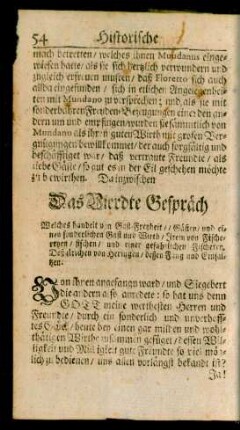 54 Historische
mach betretten/ welches ihnen Mundanus einge-
wiesen hatte/ als sie sich hertzlich verwundern und
zugleich erfreuen musten/ daß Floretto sich auch
allda eingefunden/ sich in etlichen Angelegenhei-
ten mit Mundano zu besprechen; und als sie mit
sonderbahren Freuden-Bezeugungen einer den an-
dern um und empfiengen wurden sie sämmtlich von
Mundano als ihren guten Wirth mit grossen Ver-
gnügungen bewillkommet/ der auch sorgfältig und
beschäfftiget war/ daß vertraute Freunde/ als
liebe Gäste/ so gut es in der Eil geschehen möchte
zu bewirthen. Da inzwischen
Das Vierdte Gespräch
Welches handelt von Gast-Freyheit/ Gästen/ und ei-
nem sonderlichen Gast und Wirth/ Item von Fische-
reyen/ Fischen/ und einer gefährlichen Fischerey,
Deßgleichen von Heringen/ dessen Fang und Einsal-
tzen.
Von ihnen angefangen ward/ und Siegebert
die andern also anredete: so hat uns denn
GOTT meine werthesten Herren und
Freunde/ durch ein sonderlich und unverhoff-
tes Glück/ heute bey einen gar milden und wohl-
thätigen Wirthe zusammen gefüget/ dessen Wil-
ligkeit und Mildigkeit gute Freunde so viel mög-
lich zu bedienen/ uns allen vorlängst bekandt ist?
Ja!